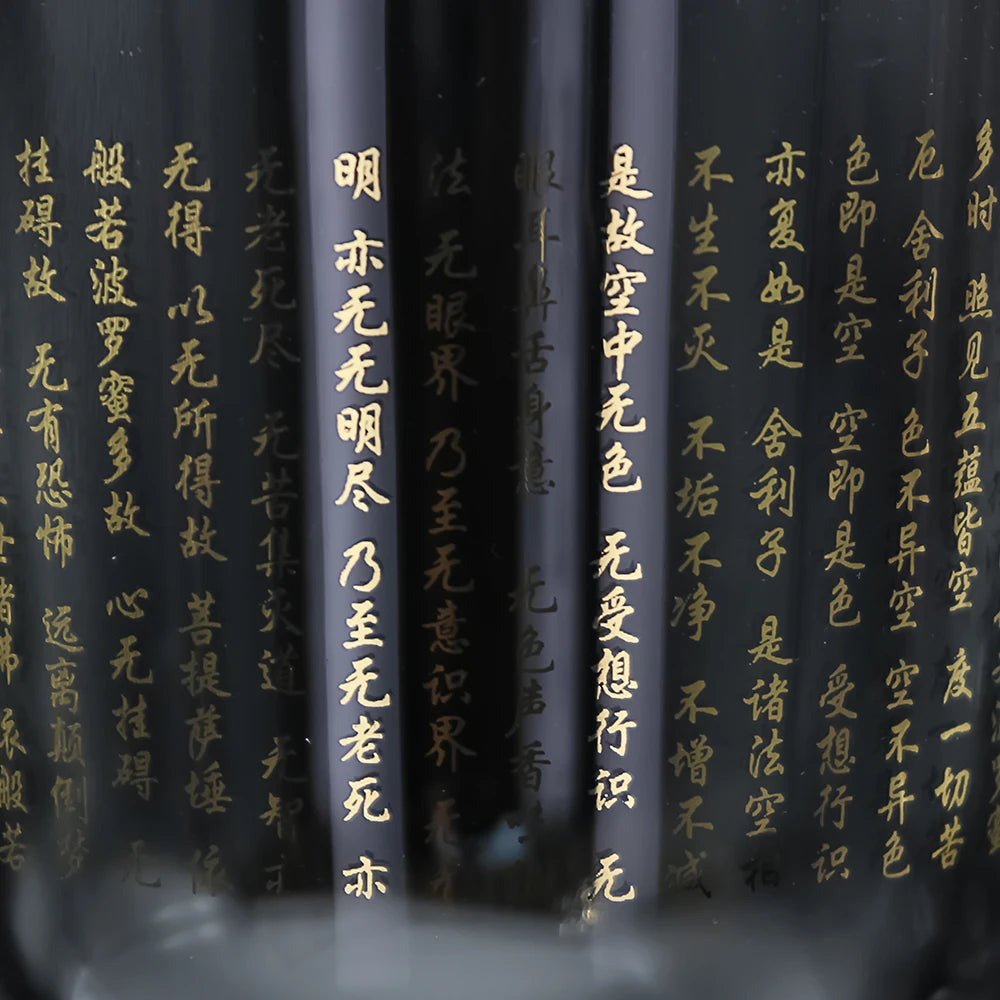 多时 照见五蕴皆空 度一切苦
厄 舍利子 色不异空 空不异色
色即是空 空即是色 受想行识
亦复如是 舍利子 是诸法空相
不生不灭 不垢不净 不增不减
是故空中无色 无受想行识 无
眼耳鼻舌身意 无色声香味
法 无眼界 乃至无意识界 无无
明 亦无无明尽 乃至无老死 亦
无老死尽 无苦集灭道 无智亦
无得 以无所得故 菩提萨埵 依
般若波罗蜜多故 心无挂碍 无
挂碍故 无有恐怖 远离颠倒梦
诸佛 依般若